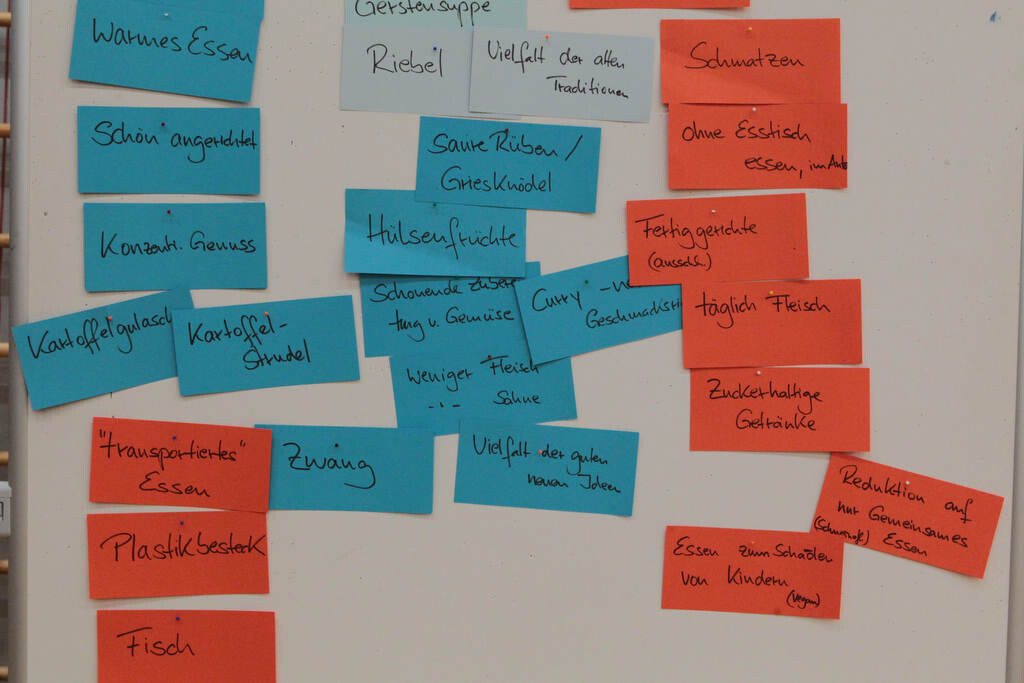 Warmes Essen
Schön angerichtet
Konzentr. Genuss
Kartoffelgulasch
Kartoffel-
Strudel
"transportiertes"
Essen
Zwang
Plastikbesteck
Fisch
Gerstensuppe
Riebel
Vielfalt der alten
Traditionen
Saure Rüben /
Griesknödel
Hülsenfrüchte
Schonende Zuberei
tung v. Gemüse
Curry -
Geschmacks
weniger Fleisch
-"- Sahne
Vielfalt der guten
neuen Ideen
Schmatzen
ohne Esstisch
essen, im Auto
Fertiggerichte
(ausschl.)
täglich Fleisch
Zuckerhaltige
Getränke
Reduktion auf
nur Gemeinsames
Essen
Essen zum Schaden
von Kindern
(vegan)